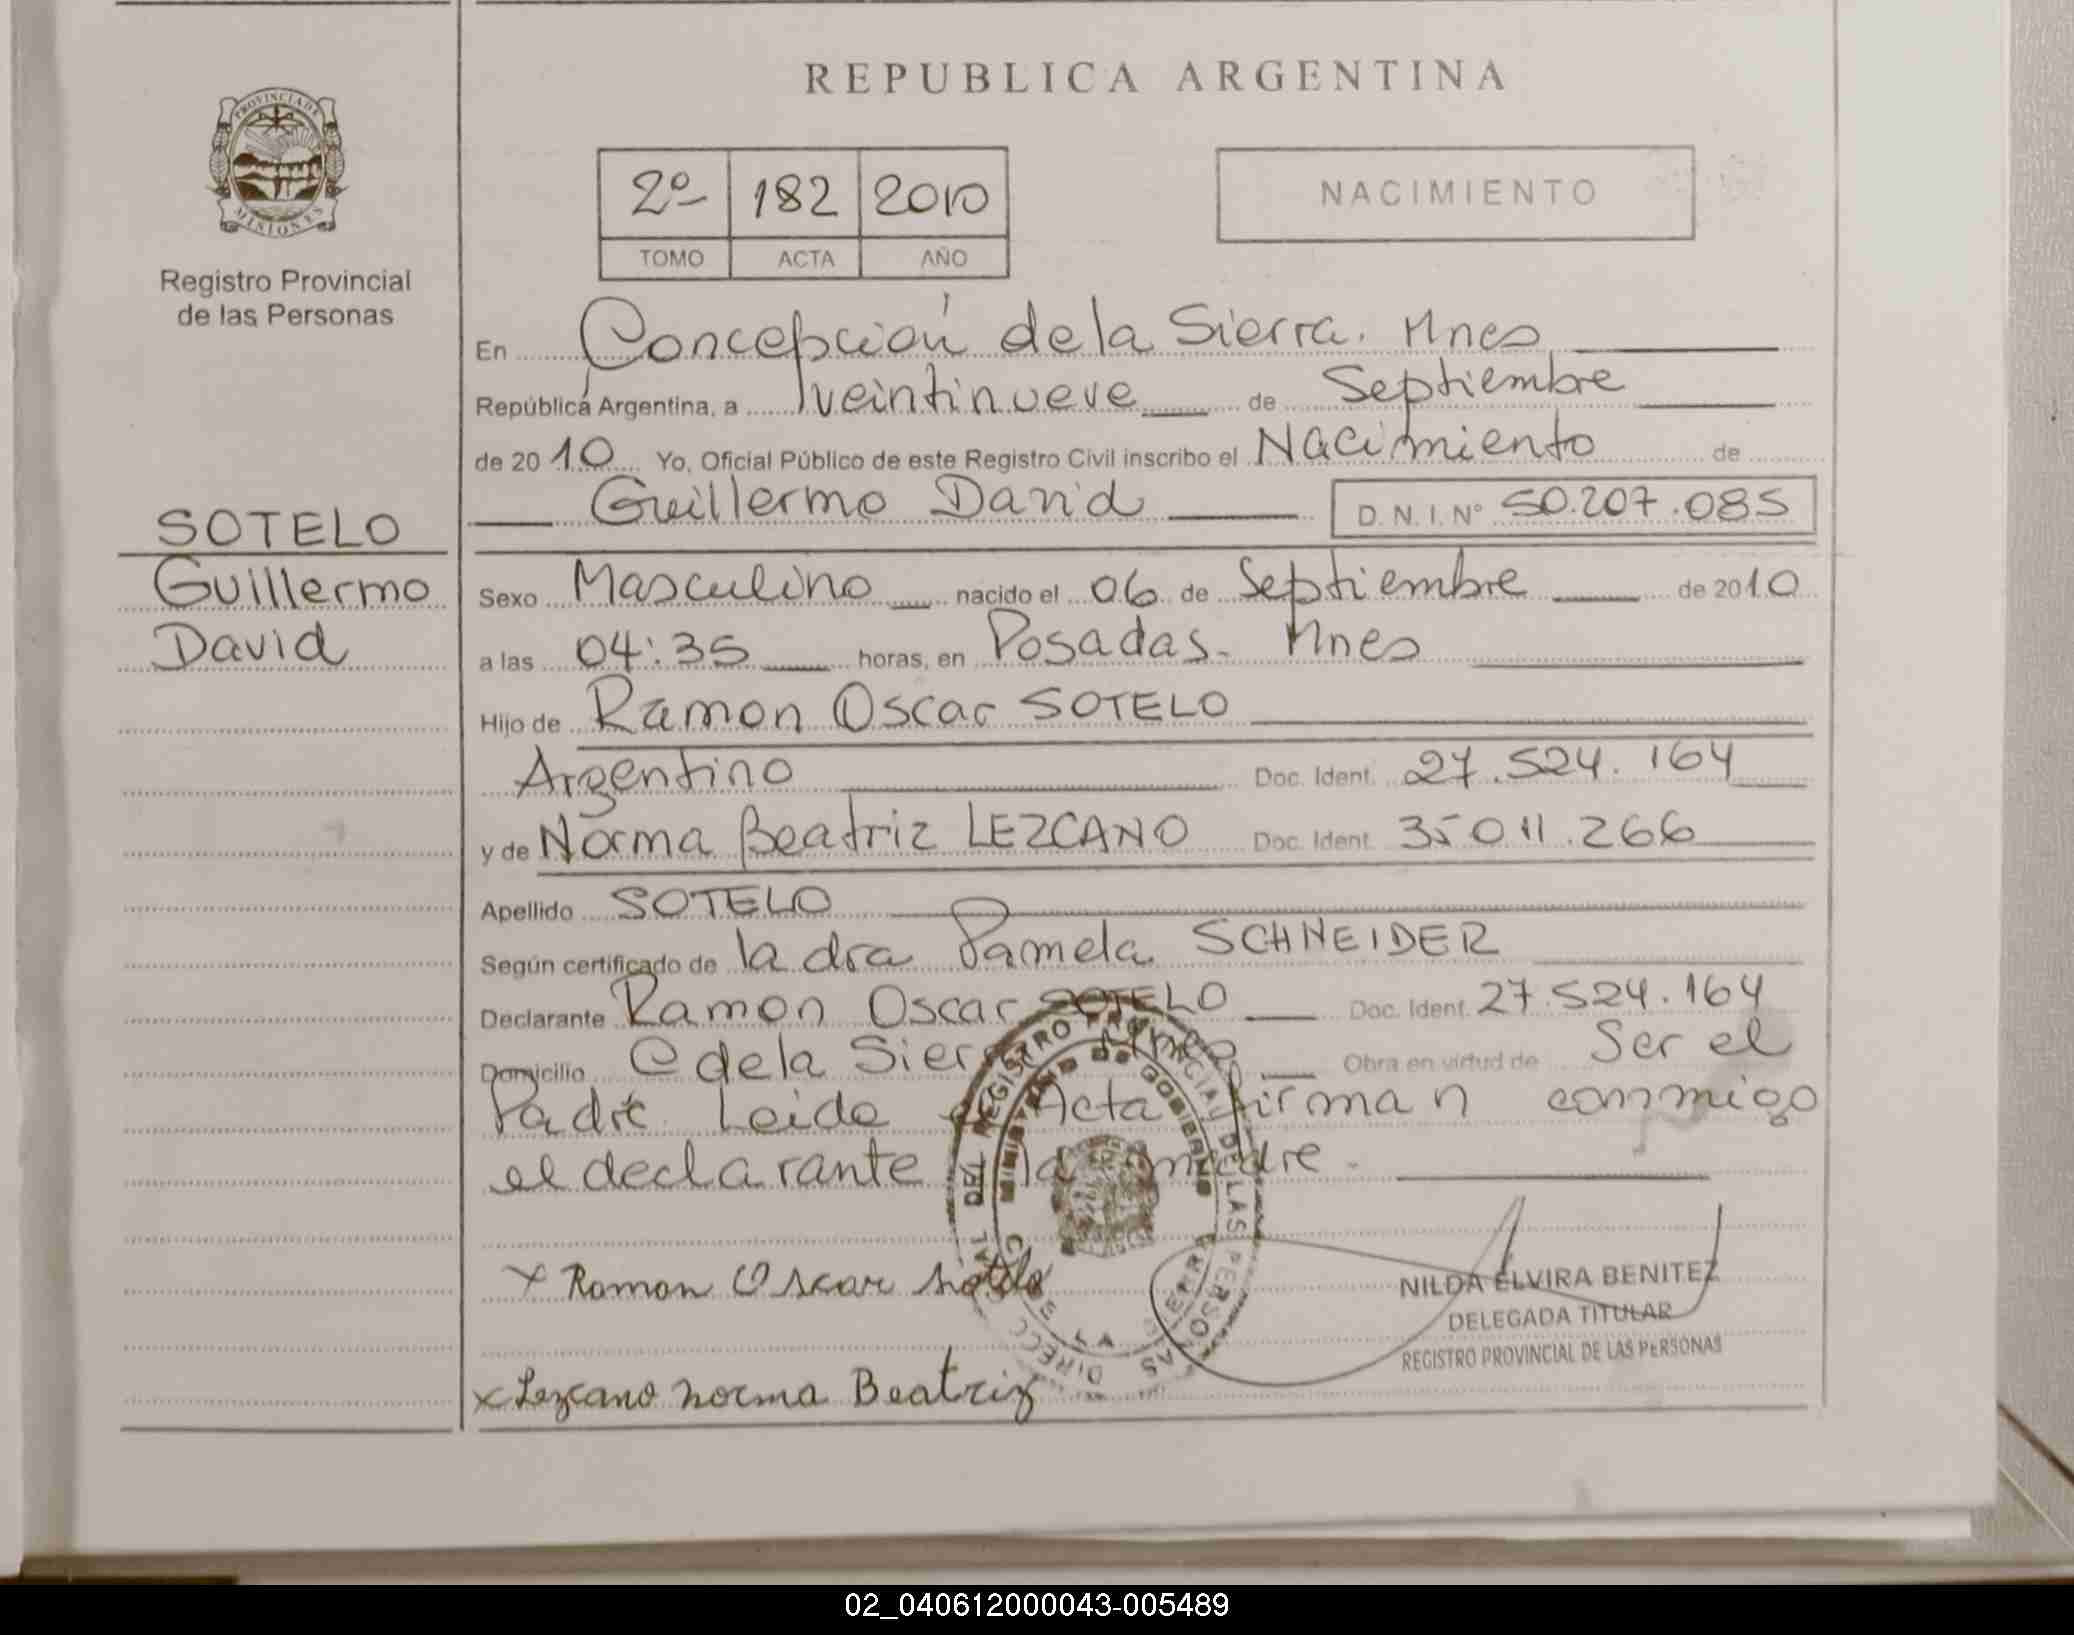 REPUBLICA ARGENTINA
PROVINCIA DE
MISIONES
Registro Provincial
de las Personas
2º 182 2010
TOMO ACTA AÑO
NACIMIENTO
En Concepción de la Sierra. Mnes
República Argentina, a veintinueve de Septiembre
de 2010 Yo, Oficial Público de este Registro Civil inscribo el Nacimiento de
Guillermo David D.N.I. Nº 50.207.085
SOTELO
Guillermo
David
Sexo Masculino nacido el 06 de Septiembre de 2010
a las 04:35 horas, en Posadas. Mnes
Hijo de Ramon Oscar SOTELO
Argentino Doc. Ident. 27.524.164
y de Norma Beatriz LEZCANO Doc. Ident. 35011.266
Apellido SOTELO
Según certificado de la dra Pamela SCHNEIDER
Declarante Ramon Oscar SOTELO Doc. Ident. 27.524.164
Domicilio C de la Sierra Mnes Obra en virtud de Ser el
Padre Leida Acta firman conmigo
el declarante la madre.
x Ramon Oscar Sotelo
x Lezcano norma Beatriz
NILDA ELVIRA BENITEZ
DELEGADA TITULAR
REGISTRO PROVINCIAL DE LAS PERSONAS
02_040612000043-005489